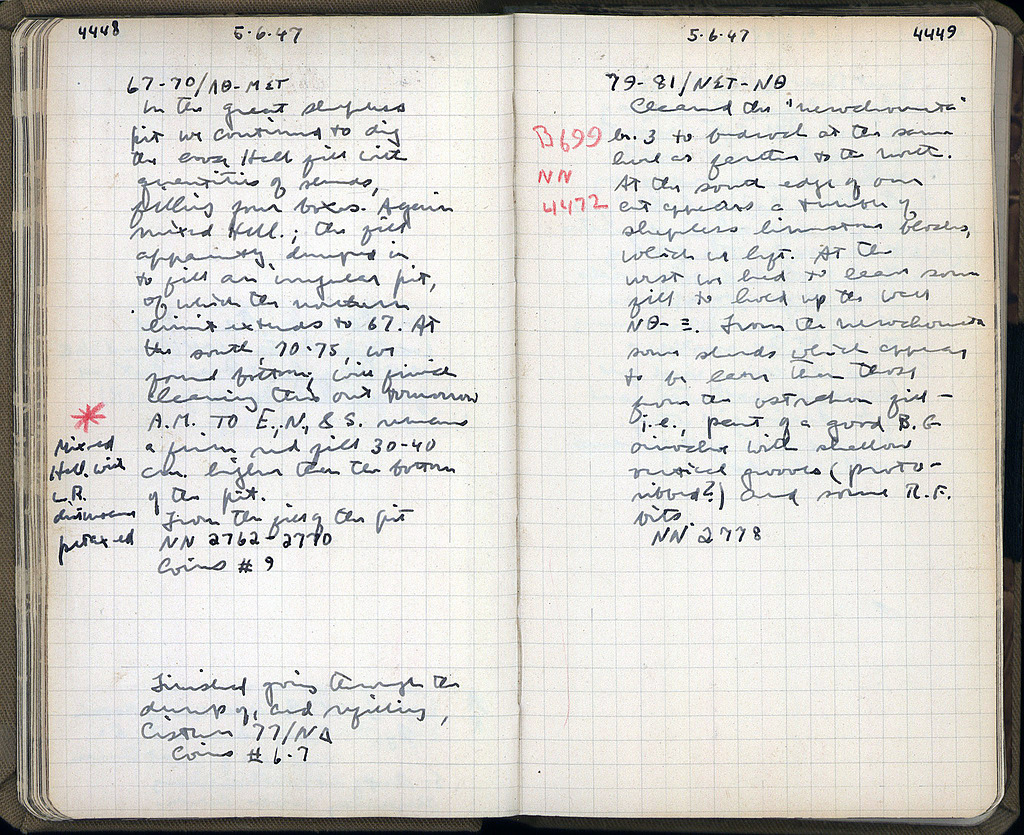 4448
5·6·47
67-70/ΛΘ-ΜΣΤ
In the great shapeless
pit we continued to dig
the Hell fill with
quantities of sherds,
filling four boxes. Again
mixed Hell.; the fill
apparently dumped in
to fill an irregular pit,
of which the northern
limit extends to 67. At
the south, 70-75, we
found bottom; will finish
cleaning this out tomorrow
A.M. TO E., N., & S. remains
a firm red fill 30-40
cm. higher than the bottom
of the pit.
From the fill of the pit
NN 2762-2770
Coins # 9
Mixed
Hell. with
L.R.
disturbance
Finished going through the
dump of, and refilling,
Cistern 77/ΝΔ
Coins # 6-7
5·6·47
4449
79-81/ΝΣΤ-ΝΘ
Cleaned the
br. 3 to bedrock at the same
level as farther to the north.
At the south edge of our
cut appears a number of
shapeless limestone blocks,
which we left. At the
west we had to leave some
fill to hold up the wall
ΝΘ-Ξ. From the
some sherds which appear
to be later than those
from the ostrakon fill –
i.e., part of a good B.G.
oinochoe with shallow
vertical grooves (proto-
ribbed?) and some R.F.
bits.
NN 2778
B699
NN
4472